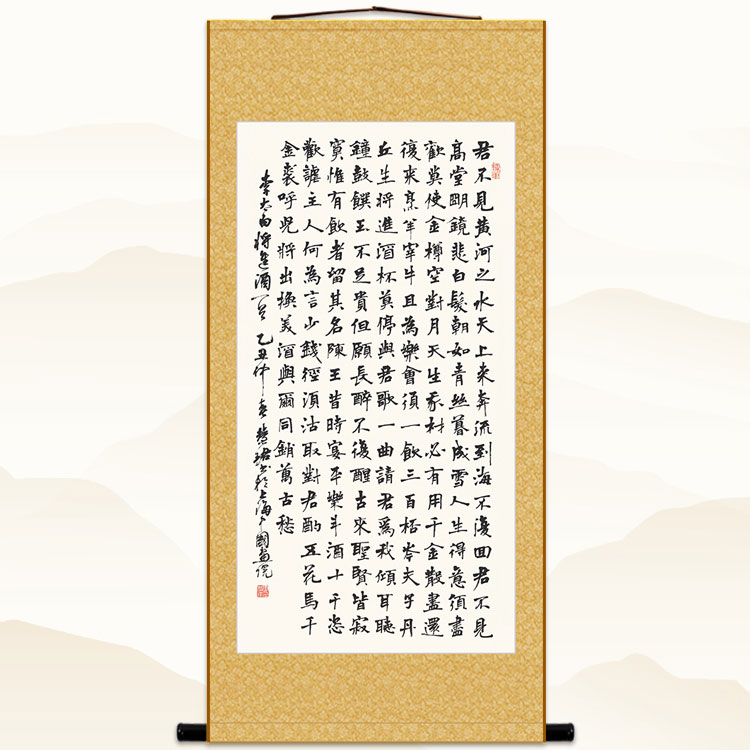 君不見黃河之水天上來奔流到海不復回君不見
高堂明鏡悲白髮朝如青絲暮成雪人生得意須盡
歡莫使金樽空對月天生我材必有用千金散盡還
復來烹羊宰牛且為樂會須一飲三百桮岑夫子丹
丘生將進酒杯莫停與君歌一曲請君爲我傾耳聽
鐘鼓饌玉不足貴但願長醉不復醒古來聖賢皆寂
寞惟有飲者留其名陳王昔時宴平樂斗酒十千恣
歡謔主人何為言少錢徑須沽取對君酌五花馬千
金裘呼兒將出換美酒與爾同銷萬古愁
李太白將進酒一首 乙丑仲春慧珺書於上海中國畫院